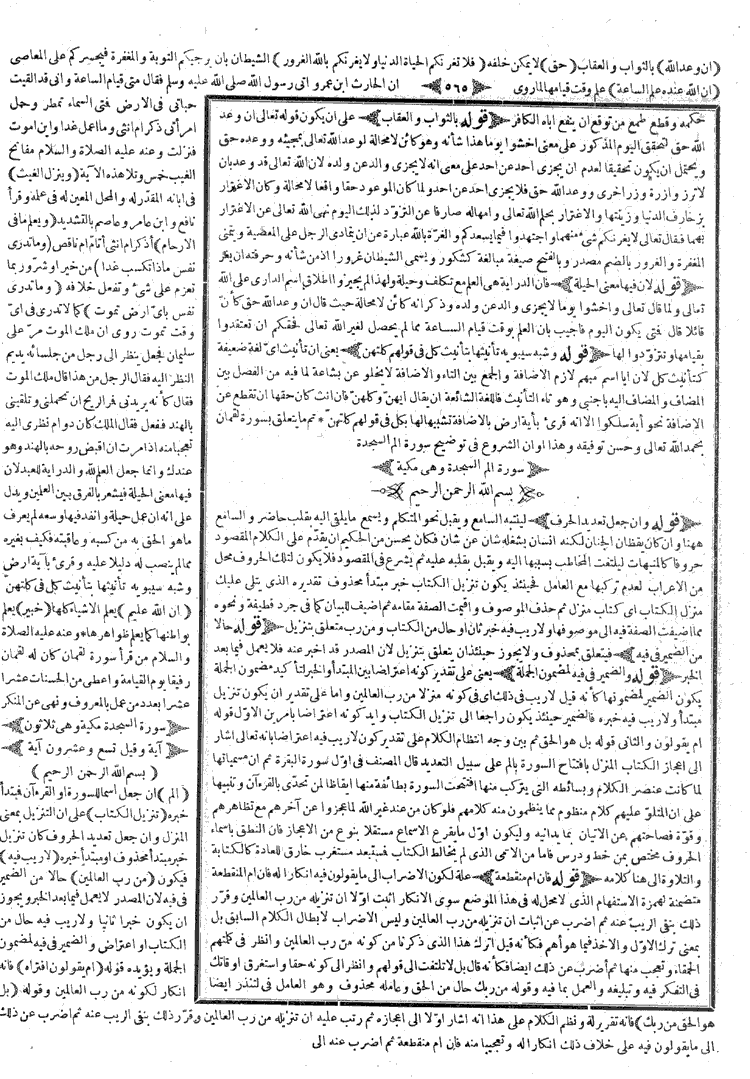 (ان وعد الله) بالثواب والعقاب (حق) لا يمكن خلفه (فلا تغرنكم الحياة الدنيا ولا يغرنكم بالله الغرور) الشيطان بان يرجيكم التوبة والمغفرة فيجسركم على المعاصى
(ان الله عنده علم الساعة) علم وقت قيامها لما روى ﴿ ٥٦٥ ﴾ ان الحارث ابن عمرو اتى رسول الله صلى الله عليه وسلم فقال متى قيام الساعة وانى قد القيت
حكمه وقطع طمع من توقع ان ينفع اباه الكافر ﴿ قوله بالثواب والعقاب ﴾ على ان يكون قوله تعالى ان وعد
الله حق لتحقق اليوم المذكور على معنى اخشوا يوما هذا شأنه وهو كائن لا محالة لوعد الله تعالى بمجيئه ووعده حق
ويحتمل ان يكون تحقيقا لعدم ان يجزى احد عن احد على معنى انه لا يجزى والد عن ولده لان الله تعالى قد وعد بان
لا تزر وازرة وزر اخرى ووعد الله حق فلا يجزى احد عن احد ولما كان الموعود حقا واقعا لا محالة وكان الاغترار
بزخارف الدنيا وزينتها والاغترار بحلم الله تعالى وامهاله صارفا عن التزود لذلك اليوم نهى الله تعالى عن الاغترار
بهما فقال تعالى لا يغرنكم شئ منهما واجتهدوا فيما يسعدكم والغرة بالله عبارة عن ان يتمادى الرجل على المعصية ويتمنى
المغفرة والغرور بالضم مصدر وبالفتح صيغة مبالغة كشكور ويسمى الشيطان غرورا لان شأنه وحرفته ان يغر
﴿ قوله لان فيها معنى الحيلة ﴾ فان الدراية هى العلم مع تكلف وحيلة ولهذا لم يجيزوا اطلاق اسم الدارى على الله
تعالى ولما قال تعالى واخشوا يوما لا يجزى والد عن ولده وذكر انه كائن لا محالة حيث قال ان وعد الله حق كأن
قائلا قال فمتى يكون اليوم فاجيب بان العلم بوقت قيام الساعة مما لم يحصل لغير الله تعالى فحقكم ان تعتقدوا
بقيامها وتتزودوا لها ﴿ قوله وشبه سيبويه تأنيثها بتأنيث كل فى قولهم كلتهن ﴾ يعنى ان تأنيث اى لغة ضعيفة
كتأنيث كل لان ايا اسم مبهم لازم الاضافة والجمع بين التاء والاضافة لا يخلو عن بشاعة لما فيه من الفصل بين
المضاف والمضاف اليه باجنبى وهو تاء التأنيث فاللغة الشائعة ان يقال ايهن وكلهن فان انث كان حقها ان تقطع عن
الاضافة نحو أية سلكوا الا انه قرئ بأية ارض بالاضافة تشبيها لها بكل فى قولهم كلتهن * تم ما يتعلق بسورة لقمان
بحمد الله تعالى وحسن توفيقه وهذا اوان الشروع فى توضيح سورة الم السجدة
﴿ سورة الم السجدة وهى مكية ﴾
﴿ بسم الله الرحمن الرحيم ﴾
﴿ قوله وان جعل تعديد الحرف ﴾ لينتبه السامع ويقبل نحو المتكلم ويسمع ما يلقى اليه بقلب حاضر والسامع
ههنا وان كان يقظان الجنان لكنه انسان يشغله شان عن شان فكان يحسن من الحكيم ان يقدم على الكلام المقصود
حروفا كالمنبهات ليلتفت المخاطب بسببها اليه ويقبل بقلبه عليه ثم يشرع فى المقصود فلا يكون لتلك الحروف محل
من الاعراب لعدم تركبها مع العامل فحينئذ يكون تنزيل الكتاب خبر مبتدأ محذوف تقديره الذى يتلى عليك
منزل الكتاب اى كتاب منزل ثم حذف الموصوف واقيمت الصفة مقامه ثم اضيف للبيان كما فى جرد قطيفة ونحوه
مما اضيفت الصفة فيه الى موصوفها ولا ريب فيه خبر ثان او حال من الكتاب ومن رب متعلق بتنزيل ﴿ قوله حالا
من الضمير فى فيه ﴾ فيتعلق بمحذوف ولا يجوز حينئذ ان يتعلق بتنزيل لان المصدر قد اخبر عنه فلا يعمل فيما بعد
الخبر ﴿ قوله والضمير فى فيه لمضمون الجملة ﴾ يعنى على تقدير كونه اعتراضا بين المبتدأ والخبر لتأكيد مضمون الجملة
يكون الضمير لمضمونها كأنه قيل لا ريب فى ذلك اى فى كونه منزلا من رب العالمين واما على تقدير ان يكون تنزيل
مبتدأ ولا ريب فيه خبره فالضمير حينئذ يكون راجعا الى تنزيل الكتاب وايد كونه اعتراضا بامرين الاول قوله
ام يقولون والثانى قوله بل هو الحق ثم بين وجه انتظام الكلام على تقدير كون لا ريب فيه اعتراضا بانه تعالى اشار
الى اعجاز الكتاب المنزل بافتتاح السورة بالم على سبيل التعديد قال المصنف فى اول سورة البقرة ثم ان مسمياتها
لما كانت عنصر الكلام وبسائطه التى يتركب منها افتتحت السورة بطائفة منها ايقاظا لمن تحدى بالقرءآن وتنبيها
على ان المتلو عليهم كلام منظوم مما ينظمون منه كلامهم فلو كان من عند غير الله لما عجزوا عن آخرهم مع تظاهرهم
وقوة فصاحتهم عن الاتيان بما يدانيه وليكون اول ما يقرع الاسماع مستقلا بنوع من الاعجاز فان النطق باسماء
الحروف مختص بمن خط ودرس فاما من الامى الذى لم يخالط الكتاب فمستبعد مستغرب خارق للعادة كالكتابة
والتلاوة الى هنا كلامه ﴿ قوله فان ام منقطعة ﴾ علة لكون الاضراب الى ما يقولون فيه انكارا له فان ام المنقطعة
متضمنة لهمزة الاستفهام الذى لا محل له فى هذا الموضع سوى الانكار اثبت اولا ان تنزيله من رب العالمين وقرر
ذلك بنفى الريب عنه ثم اضرب عن اثبات ان تنزيله من رب العالمين وليس الاضراب لابطال الكلام السابق بل
بمعنى ترك الاول والاخذ فيما هو أهم فكأنه قيل اترك هذا الذى ذكرنا من كونه من رب العالمين وانظر فى كلمتهم
الحمقاء وتعجب منها ثم أضرب عن ذلك ايضا فكأنه قال بل لا تلتفت الى قولهم وانظر الى كونه حقا واستغرق اوقاتك
فى التفكر فيه وتبليغه والعمل بما فيه وقوله من ربك حال من الحق وعامله محذوف وهو العامل فى لتنذر ايضا
حباتى فى الارض فمتى السماء تمطر وحمل
امرأتى ذكر ام انثى وما اعمل غدا واين اموت
فنزلت وعنه عليه الصلاة والسلام مفاتح
الغيب خمس وتلا هذه الآية (وينزل الغيث)
فى ابانه المقدر له والمحل المعين له فى علمه وقرأ
نافع وابن عامر وعاصم بالتشديد (ويعلم ما فى
الارحام) أذكر ام انثى أتام ام ناقص (وما تدرى
نفس ماذا تكسب غدا) من خير او شر وربما
تعزم على شئ وتفعل خلافه (وما تدرى
نفس باى ارض تموت) كما لا تدرى فى اى
وقت تموت روى ان ملك الموت مر على
سليمان فجعل ينظر الى رجل من جلسائه يديم
النظر اليه فقال الرجل من هذا قال ملك الموت
فقال كأنه يريدنى فمر الريح ان تحملنى وتلقينى
بالهند ففعل فقال الملك كان دوام نظرى اليه
تعجبا منه اذ امرت ان اقبض روحه بالهند وهو
عندك وانما جعل العلم لله والدراية للعبد لان
فيها معنى الحيلة فيشعر بالفرق بين العلمين ويدل
على انه ان عمل حيلة وانفد فيها وسعه لم يعرف
ما هو الحق به من كسبه وعاقبته فكيف بغيره
مما لم ينصب له دليلا عليه وقرئ بأية ارض
وشبه سيبويه تأنيثها بتأنيث كل فى كلتهن
(ان الله عليم) يعلم الاشياء كلها (خبير) يعلم
بواطنها كما يعلم ظواهرها * وعنه عليه الصلاة
والسلام من قرأ سورة لقمان كان له لقمان
رفيقا يوم القيامة واعطى من الحسنات عشرا
عشرا بعدد من عمل بالمعروف ونهى عن المنكر
﴿ سورة السجدة مكية وهى ثلاثون ﴾
﴿ آية وقيل تسع وعشرون آية ﴾
(بسم الله الرحمن الرحيم)
(الم) ان جعل اسما للسورة او القرءآن فمبتدأ
خبره (تنزيل الكتاب) على ان التنزيل بمعنى
المنزل وان جعل تعديد الحروف كان تنزيل
خبر مبتدأ محذوف او مبتدأ خبره (لا ريب فيه)
فيكون (من رب العالمين) حالا من الضمير
فى فيه لان المصدر لا يعمل فيما بعد الخبر ويجوز
ان يكون خبرا ثانيا ولا ريب فيه حال من
الكتاب او اعتراض والضمير فى فيه لمضمون
الجملة ويؤيده قوله (ام يقولون افتراه) فانه
انكار لكونه من رب العالمين وقوله (بل
هو الحق من ربك) فانه تقرير له ونظم الكلام على هذا انه اشار اولا الى اعجازه ثم رتب عليه ان تنزيله من رب العالمين وقرر ذلك بنفى الريب عنه ثم اضرب عن ذلك
الى ما يقولون فيه على خلاف ذلك انكارا له وتعجيبا منه فان ام منقطعة ثم اضرب عنه الى